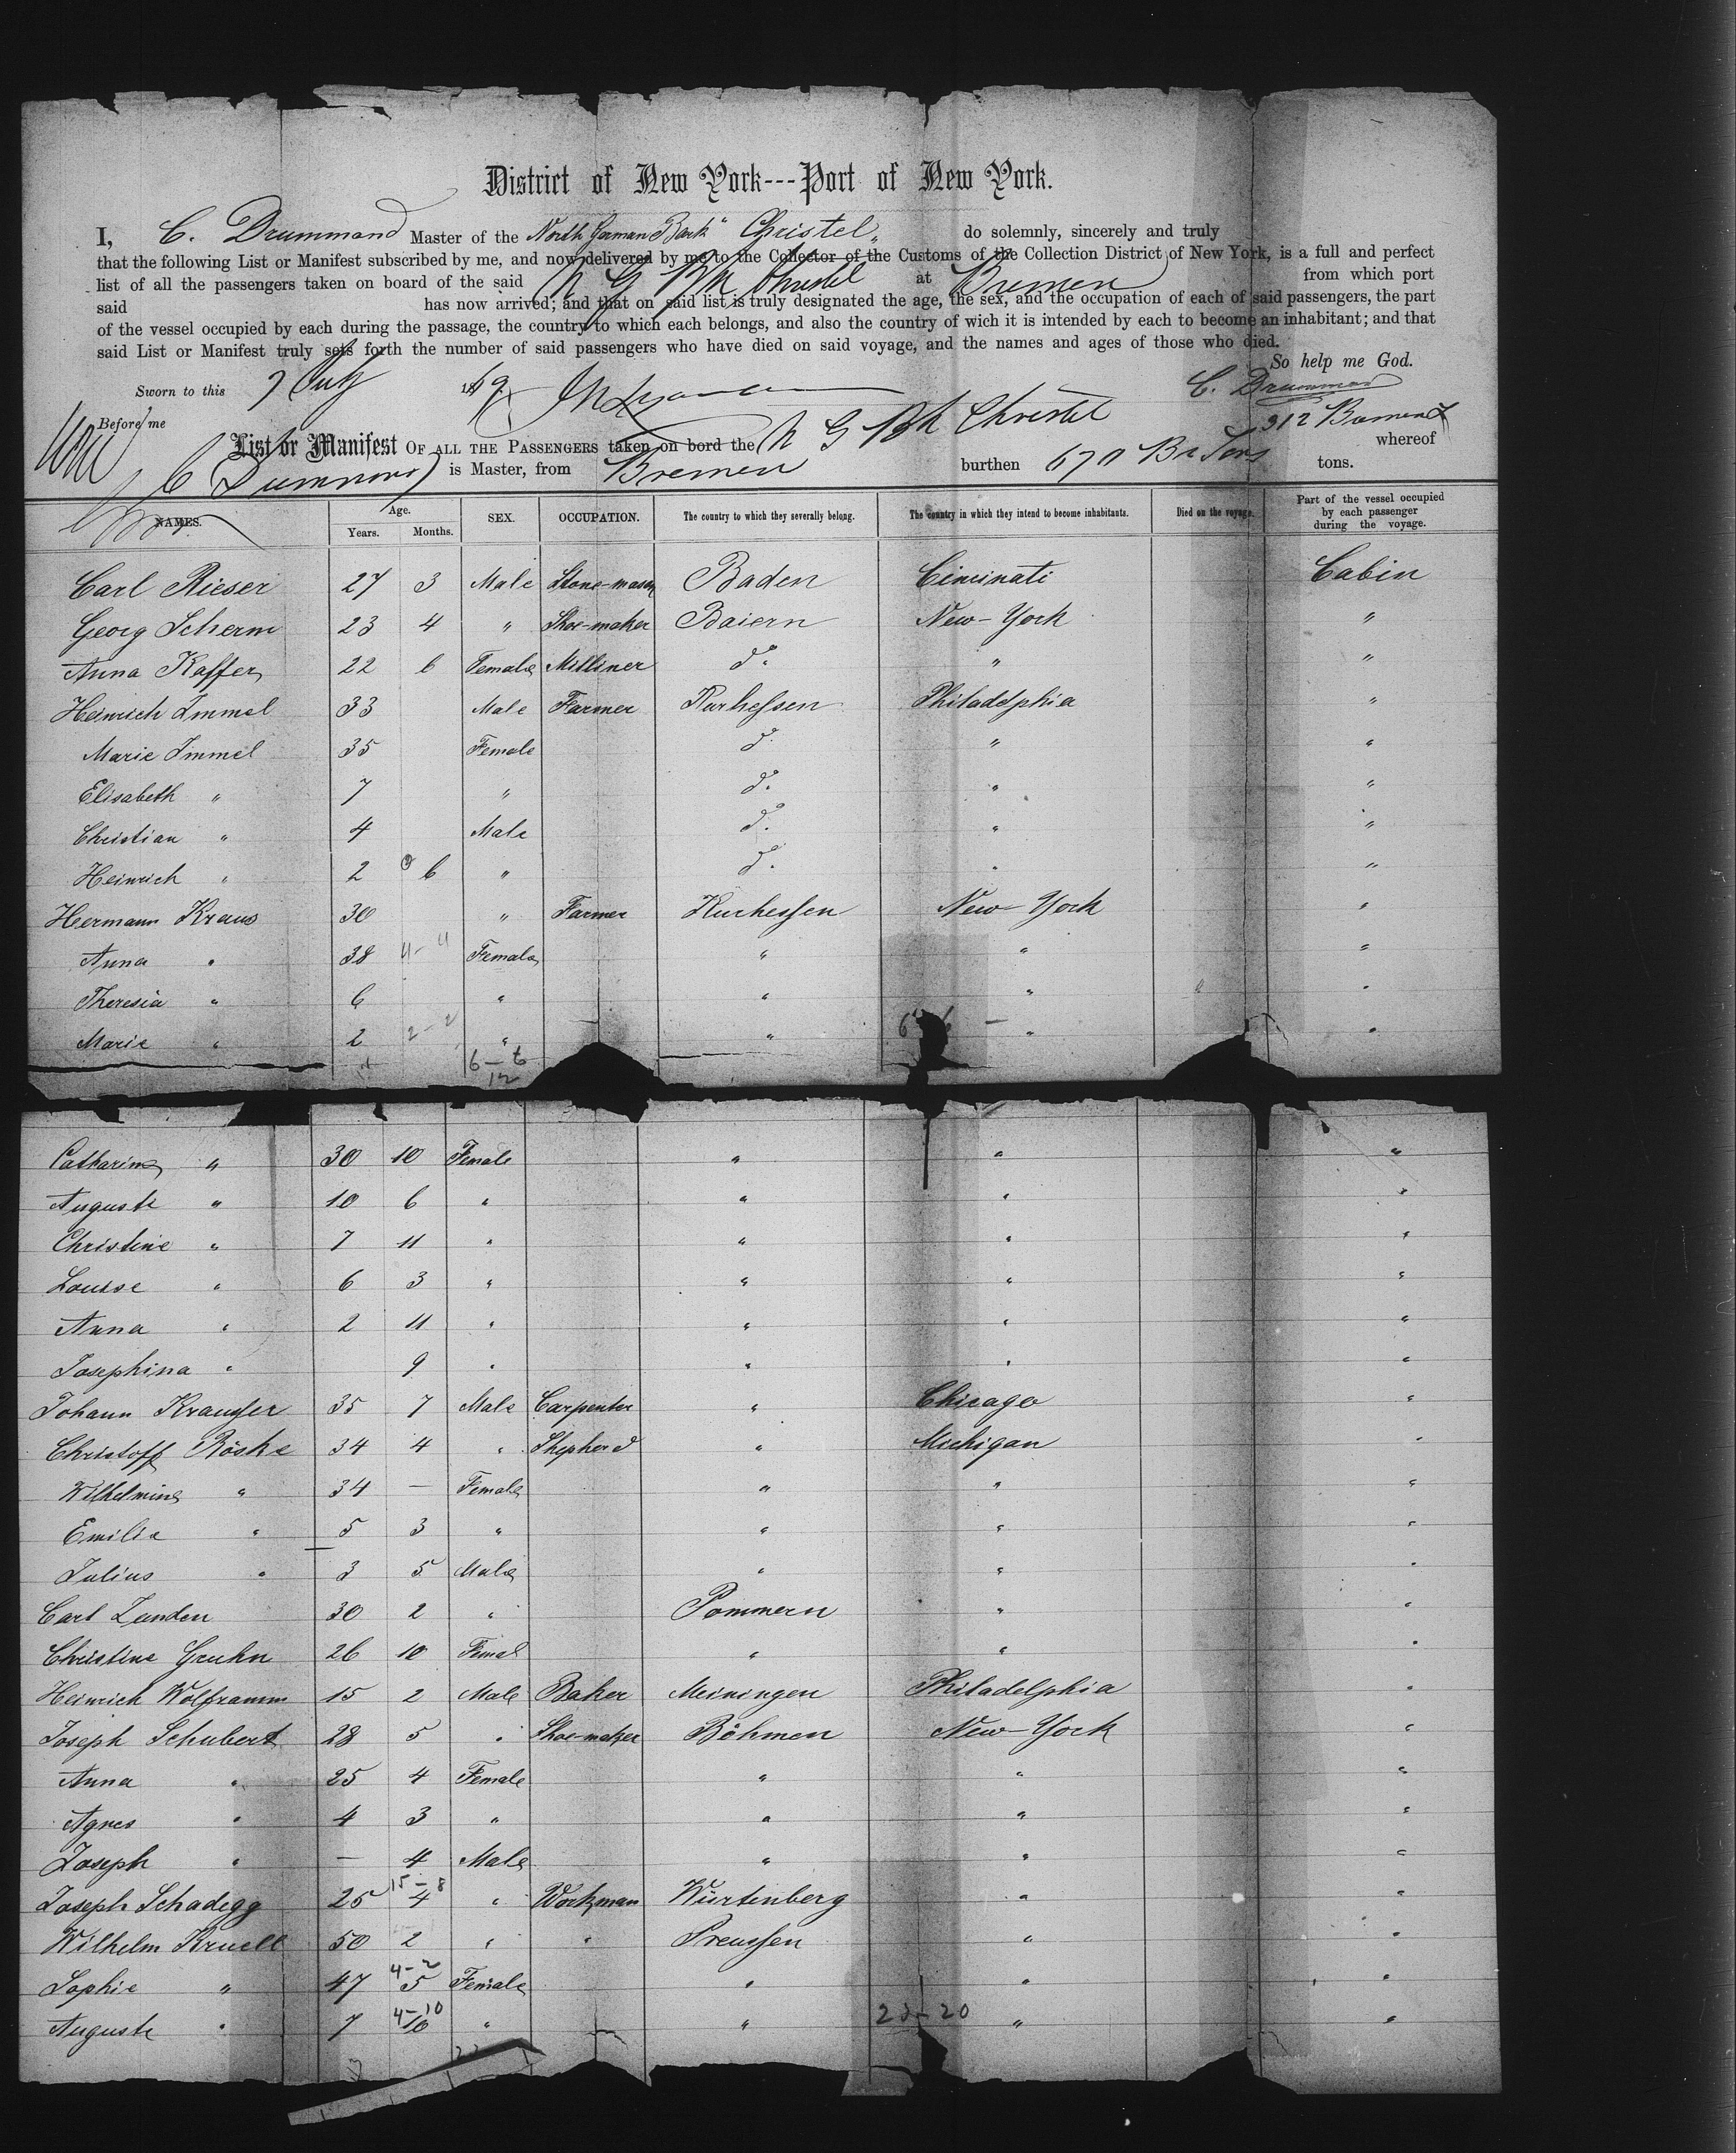 District of New York---Port of New York.
I, C. Drummond Master of the North German Bark "Christel" do solemnly, sincerely and truly
that the following List or Manifest subscribed by me, and now delivered by me to the Collector of the Customs of the Collection District of New York, is a full and perfect
list of all the passengers taken on board of the said N G Bk Christel at Bremen from which port
said has now arrived; and that on said list is truly designated the age, the sex, and the occupation of each of said passengers, the part
of the vessel occupied by each during the passage, the country to which each belongs, and also the country of wich it is intended by each to become an inhabitant; and that
said List or Manifest truly sets forth the number of said passengers who have died on said voyage, and the names and ages of those who died.
So help me God.
Sworn to this 7 July 1869 C. Drummond
Before me
List or Manifest OF ALL THE PASSENGERS taken on bord the N G Bk Christel whereof
C Drummond is Master, from Bremen burthen 670 Br Tons tons.
NAMES. Age. Years. Months. SEX. OCCUPATION. The country to which they severally belong. The country in which they intend to become inhabitants. Died on the voyage. Part of the vessel occupied by each passenger during the voyage.
Carl Rieser 27 3 Male Stone-mason Baden Cincinati Cabin
Georg Scherm 23 4 " Shoe-maker Baiern New-York "
Anna Kaffer 22 6 Female Milliner do. " "
Heinrich Immel 33 Male Farmer Kurhessen Philadelphia "
Marie Immel 35 Female do. " "
Elisabeth " 7 " do. " "
Christian " 4 Male do. " "
Heinrich " 2 6 " do. " "
Hermann Kraus 30 " Farmer Kurhessen New-York "
Anna " 38 4-4 Female " " "
Theresia " 6 " " " "
Marie " 2 2-2 " " " "
6-6
12
Catharina " 30 10 Female " " "
Auguste " 10 6 " " " "
Christine " 7 11 " " " "
Louise " 6 3 " " " "
Anna " 2 11 " " " "
Josephina " 9 " " " "
Johann Krausser 35 7 Male Carpenter " Chicago "
Christoff Röske 34 4 " Shepherd " Michigan "
Wilhelmina " 34 — Female " " "
Emilie " 5 3 " " " "
Julius " 3 5 Male " " "
Carl Zunden 30 2 " Pommern " "
Christine Gruhn 26 10 Femal " " "
Heinrich Wolframm 15 2 Male Baker Meiningen Philadelphia "
Joseph Schubert 28 5 " Shoe-maker Böhmen New-York "
Anna " 25 4 Female " " "
Agnes " 4 3 " " " "
Joseph " — 4 Male " " "
15-8
Joseph Schadegg 25 4 " Workman Würtenberg " "
Wilhelm Kruell 50 2 " " Preussen " "
4-2
Sophie " 47 5 Female " " "
4-10
Auguste " 7 10 " " " "